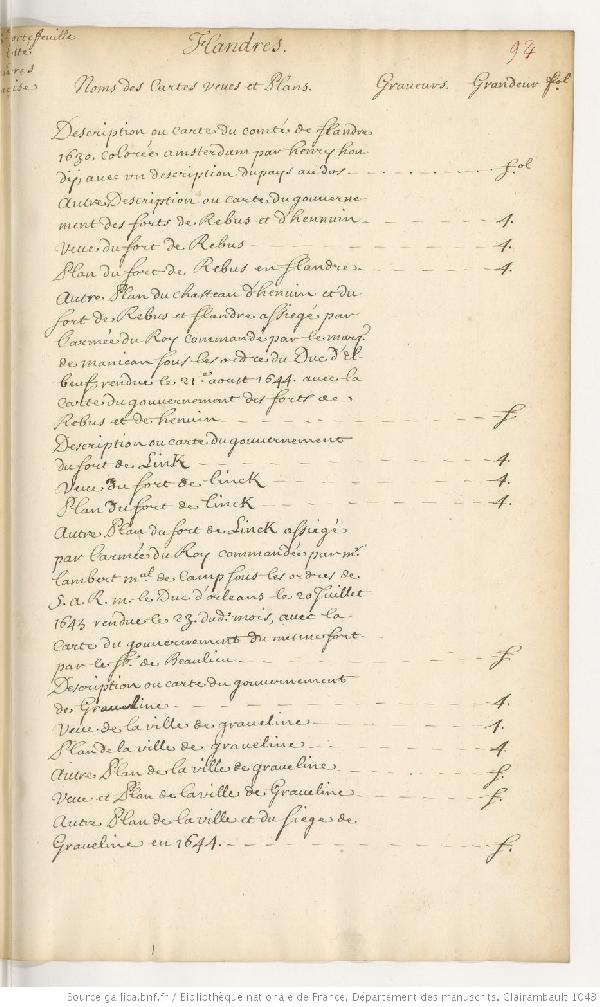 Portefeuille
Flandres.
94
Noms des Cartes veues et Plans. Graveurs. Grandeur fol
Description ou carte du comté de flandre
1630. colorée amsterdam par henry hon
dij, avec un description du pays au dos fol
Autre Description ou carte du gouverne
ment des forts de Rebus et d'hennuin 4.
Veue du fort de Rebus 4.
Plan du fort de Rebus en flandre 4.
Autre Plan du chasteau d'henuin et du
fort de Rebus et flandre assiegé par
l'armée du Roy commandé par le marq.
de manican sous les ordre du Duc d'El
buf, rendue le 21. aoust 1644. avec la
carte du gouvernement des forts de
Rebus et de henuin f.
Description ou carte du gouvernement
du fort de Linck 4.
Veue du fort de linck 4.
Plan du fort de linck 4.
Autre Plan du fort de Linck assiegé
par l'armée du Roy commandée par mr.
lambert mal. de camp sous les ordres de
S. a. R. m. le Duc d'orleans le 20 Juillet
1645 rendue le 23. dud. mois, avec la
carte du gouvernement du mesme fort
par le Sr. de Beaulieu f.
Description ou carte du gouvernement
de Graveline 4.
Veue de la ville de graveline 4.
Plan de la ville de graveline 4.
Autre Plan de la ville de graveline f.
Veue et Plan de la ville de Graveline f.
Autre Plan de la ville et du siege de
Graveline en 1644. f.
Source gallica.bnf.fr / Bibliothèque nationale de France. Département des manuscrits. Clairambault 1043